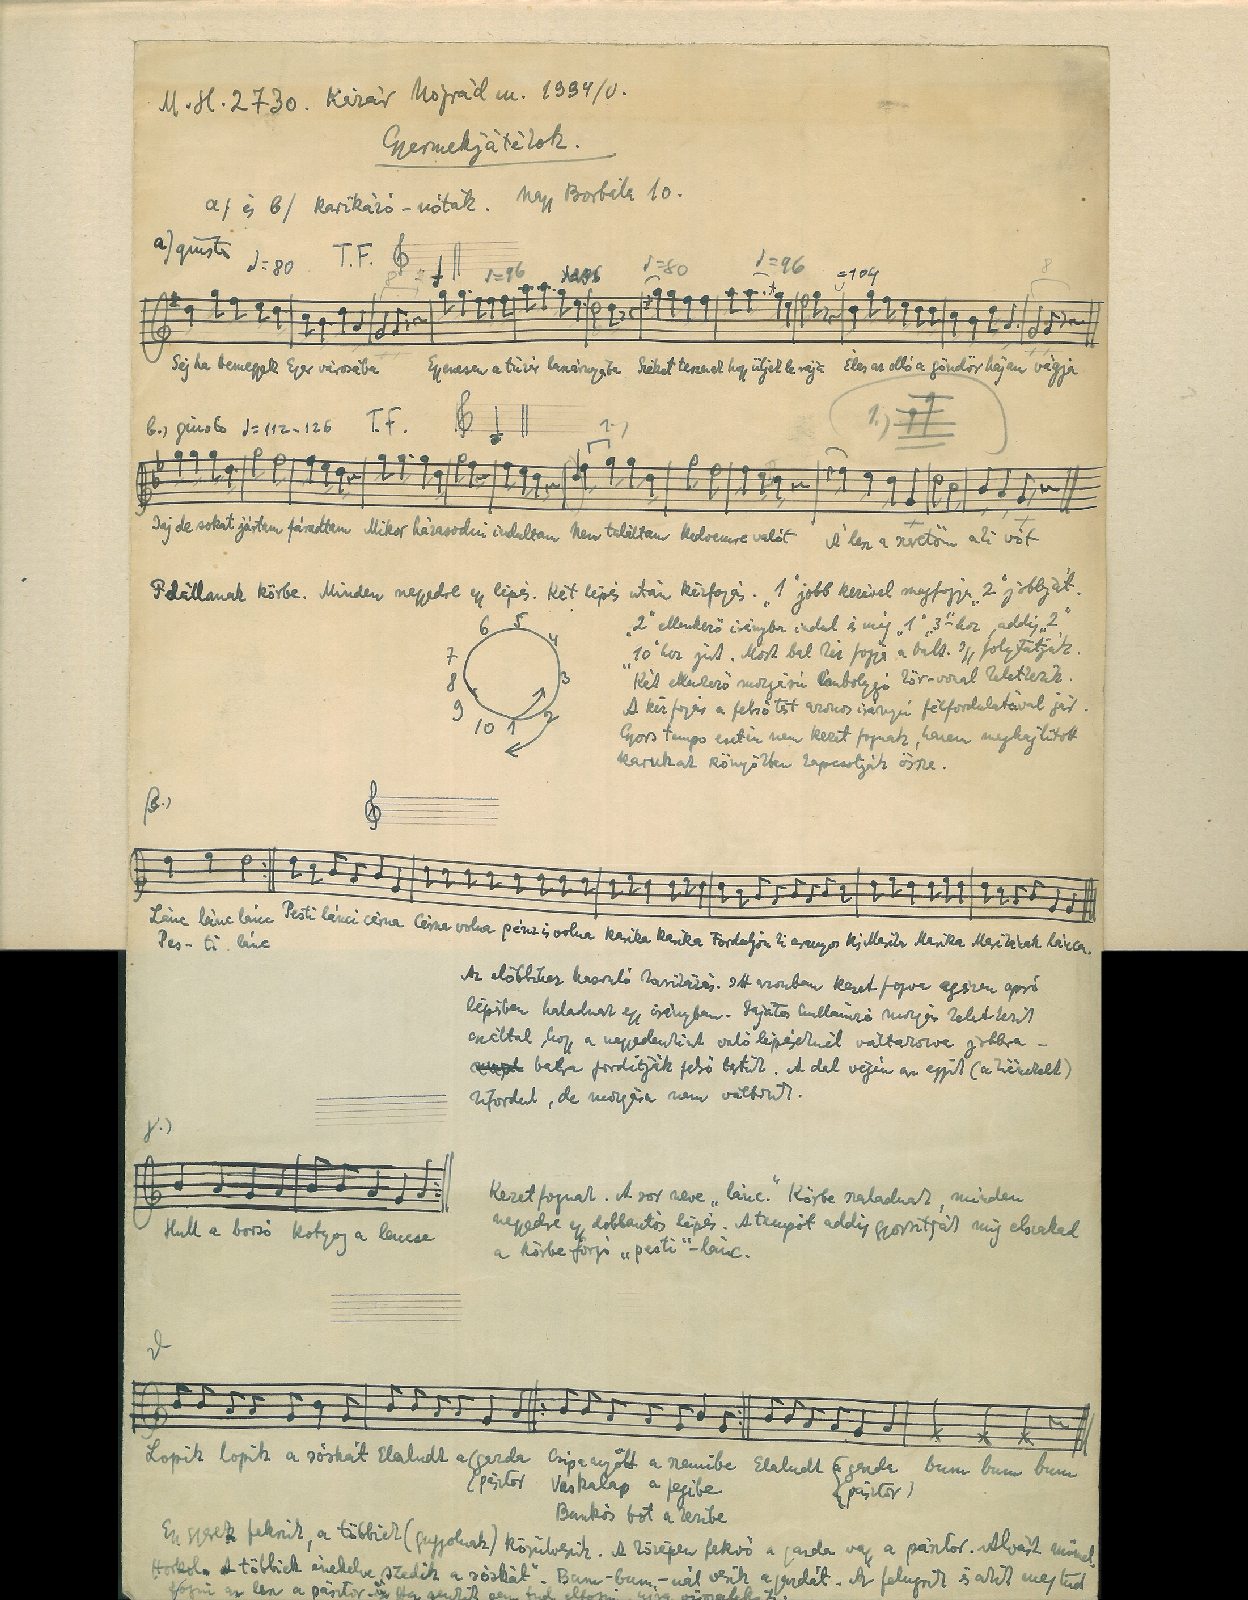 M.H. 2730. Kazár Nógrád m. 1934/V.
Gyermekjátékok.
a/ és b/ karikázó-nóták. Nagy Borbála 10.
a) giusto ♩=80 T.F. ♩=96 ♩=80 ♩=96 =104
8
Séj ha bemegyek Eger városába Egyenesen a tiszta Széket tesznek hogy üljek le rája Éles az olló a göndör hajam vágja
b.) giusto ♩=112-126 T.F. 1.) 1.)
Jaj de sokat jártam fáradtam Mikor házasodni indultam Nem találtam kedvemre valót A lesz a szeretőm aki vót
Felállanak körbe. Minden negyedre egy lépés. Két lépés után kézfogás. „1" jobb kezével megfogja „2" jobbját.
„2" ellenkező irányba indul és míg „1" „3"-hoz, addig „2"
„10"hez jut. Most bal kéz fogja a balt. Így folytatják.
Két ellenkező mozgású körvonal keletkezik.
A kézfogás a felső test azonos irányú félfordulatával jár.
Gyors tempo esetén nem kezet fognak, hanem meghajlított
karukat könyökben kapcsolják össze.
6 5 4
7
8 3
9 2
10 1
β.)
Lánc lánc lánc Pesti lánci cérna Cérna volna pénz is volna karika karika Forduljon ki aranyos kis Marika Marika Marikának lánca.
Pes-ti lánc
Az előbbihez hasonló karikázás. Itt azonban kezet fogva egészen apró
lépésben haladnak egy irányban. Sajátos hullámzó mozgás keletkezik
azáltal, hogy a negyedenként való lépéseknél váltakozva jobbra-
balra fordítják felső testük. A dal végén az egyik (a kiénekelt)
kifordul, de mozgása nem változik.
γ.)
Hull a borsó kotyog a lencse
Kezet fognak. A sor neve „lánc." Körbe szaladnak, minden
negyedre egy dobbantós lépés. A tempót addig gyorsítják míg elszakad
a körbe forgó „pesti"-lánc.
δ
Lopik lopik a sóskát Elaludt a (gazda Csipa nyőtt a szemibe Elaludt a {gazda bum bum bum
(pásztor Vaskalap a fejibe {pásztor)
Bunkós bot a kezibe
Egy gyerek fekszik, a többiek (guggolnak) körülveszik. A középen fekvő a gazda vagy a pásztor. Alvást mímel.
Horkol. A többiek énekelve „szedik a sóskát". Bum-bum-nál verik a gazdát. Az felugrik és akit meg tud
fogni az lesz a pásztor.